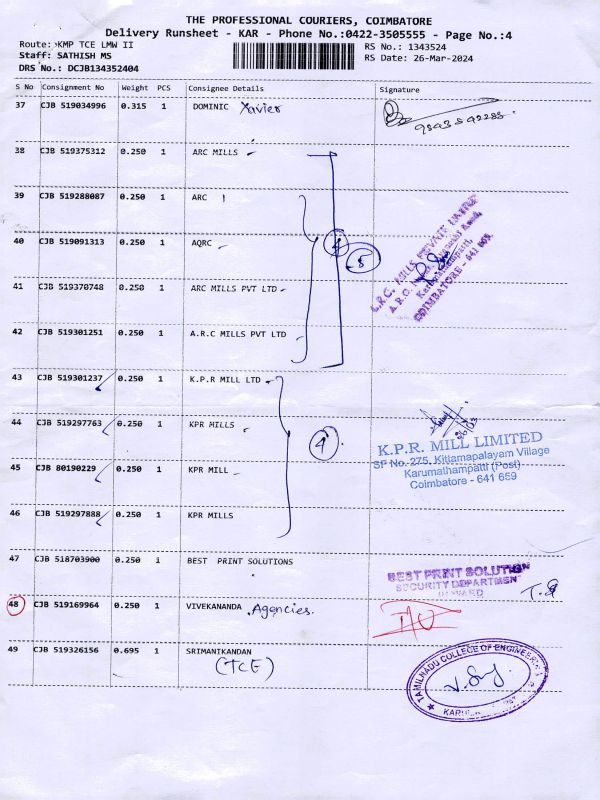 THE PROFESSIONAL COURIERS, COIMBATORE
Delivery Runsheet - KAR - Phone No.:0422-3505555 - Page No.:4
Route: KMP TCE LMW II
RS No.: 1343524
Staff: SATHISH MS
RS Date: 26-Mar-2024
DRS No.: DCJB134352404
S No Consignment No Weight PCS Consignee Details Signature
37 CJB 519034996 0.315 1 DOMINIC Xavier
38 CJB 519375312 0.250 1 ARC MILLS
39 CJB 519288087 0.250 1 ARC
40 CJB 519091313 0.250 1 AQRC
5
A.R.C. MILLS PRIVATE LIMITED
COIMBATORE - 641 659.
41 CJB 519370748 0.250 1 ARC MILLS PVT LTD
42 CJB 519301251 0.250 1 A.R.C MILLS PVT LTD
43 CJB 519301237 0.250 1 K.P.R MILL LTD
44 CJB 519297763 0.250 1 KPR MILLS
4
K.P.R. MILL LIMITED
SF No.-275, Kittampalayam Village
Karumathampatti (Post)
Coimbatore - 641 659
45 CJB 80190229 0.250 1 KPR MILL
46 CJB 519297888 0.250 1 KPR MILLS
47 CJB 518703900 0.250 1 BEST PRINT SOLUTIONS
BEST PRINT SOLUTION
SECURITY DEPARTMENT
INWARD
48 CJB 519169964 0.250 1 VIVEKANANDA Agencies.
49 CJB 519326156 0.695 1 SRIMANIKANDAN
(TCE)
TAMILNADU COLLEGE OF ENGINEERING